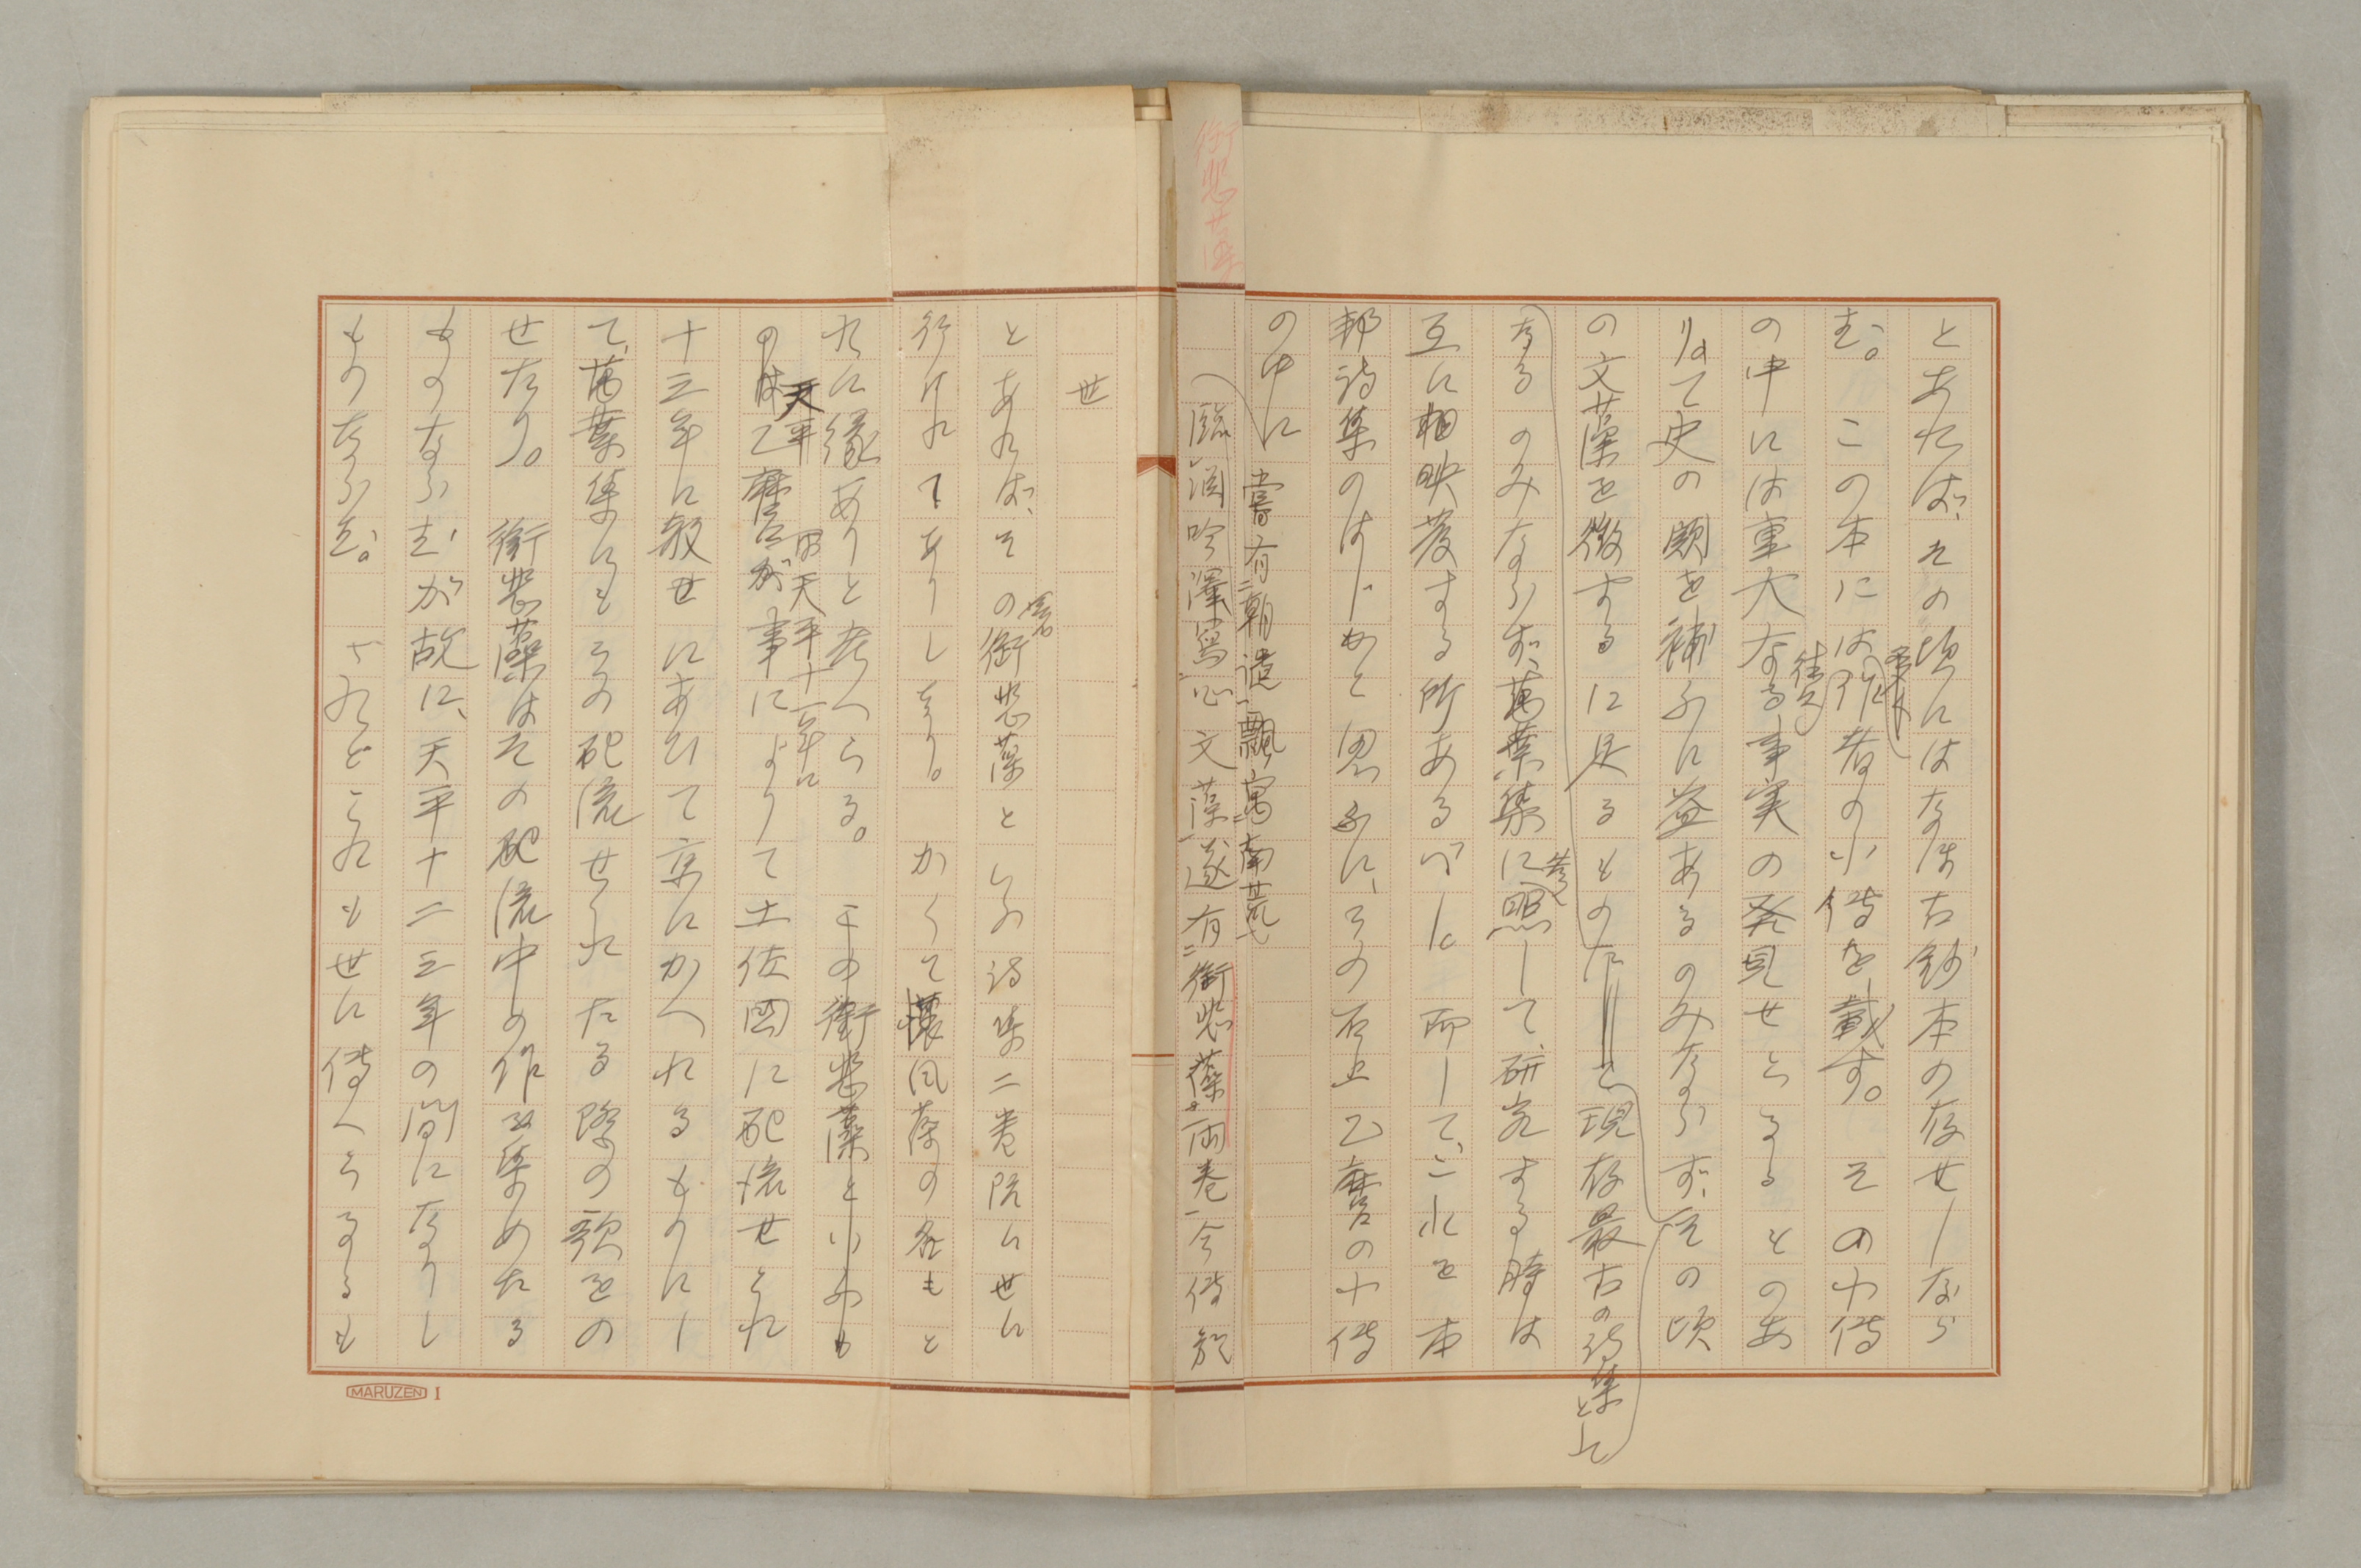 とあれば、その頃にはなほ古鈔本の存せしなら
む。この本には作者の小傳を載す。その小傳
往々
の中には重大なる事実の発見せらるゝものあ
りて史の闕を補ふに益あるのみならず、その頃
の文藻を徴するに足るものなり
と現存最古の詩集として
なるのみならず、萬葉集に照して研究する時は
互に相映發する所あるべし。而してこれを本
邦詩集のはじめと思ふに、その石上乙麿の小傳
の中に
嘗有朝譴飄寓南荒
臨淵吟澤寫心文藻遂有銜悲藻兩卷今傳於
銜悲藻
世
とあれば、その銜悲藻といふ詩集二巻既に世に
行はれてありしなり。かくて懐風藻の名もと
れに縁ありと考へらる。この銜悲藻といふも
天平
のは乙麿が事によりて土佐国に配流せられ
天平十一年に
十三年に赦せにあひて京にかへれるものにし
て、萬葉集にもその配流せられたる際の歌をの
せたり。銜悲藻はその配流中の作を集めたる
ものならむが故に、天平十二三年の間になりし
ものならむ。されどこれも世に傳へらるゝも
MARUZEN I